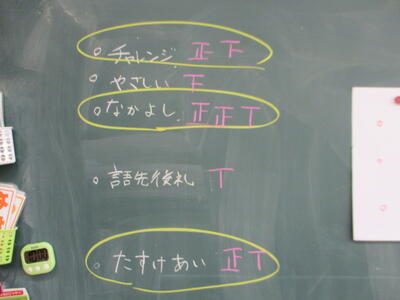 ○ チャレンジ 正 下
○ やさしい 下
○ なかよし 正 正 T
○ 語先後礼 T
○ たすけあい 正 T